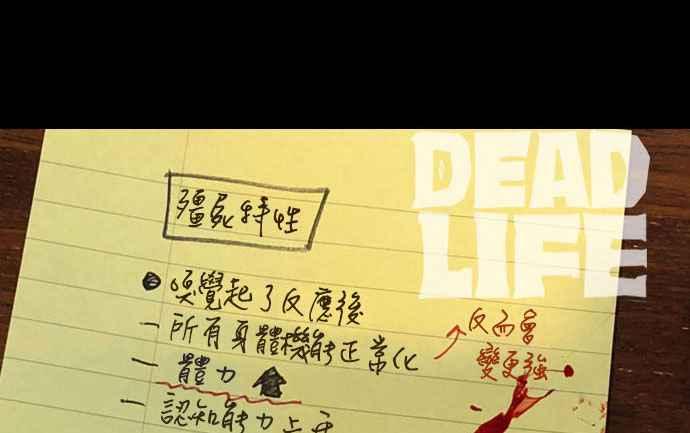 DEAD
LIFE
殭屍特性
嗅覺起了反應後
一 所有身體機能正常化
一 體力
一 認知能力上升
反而會
變更強